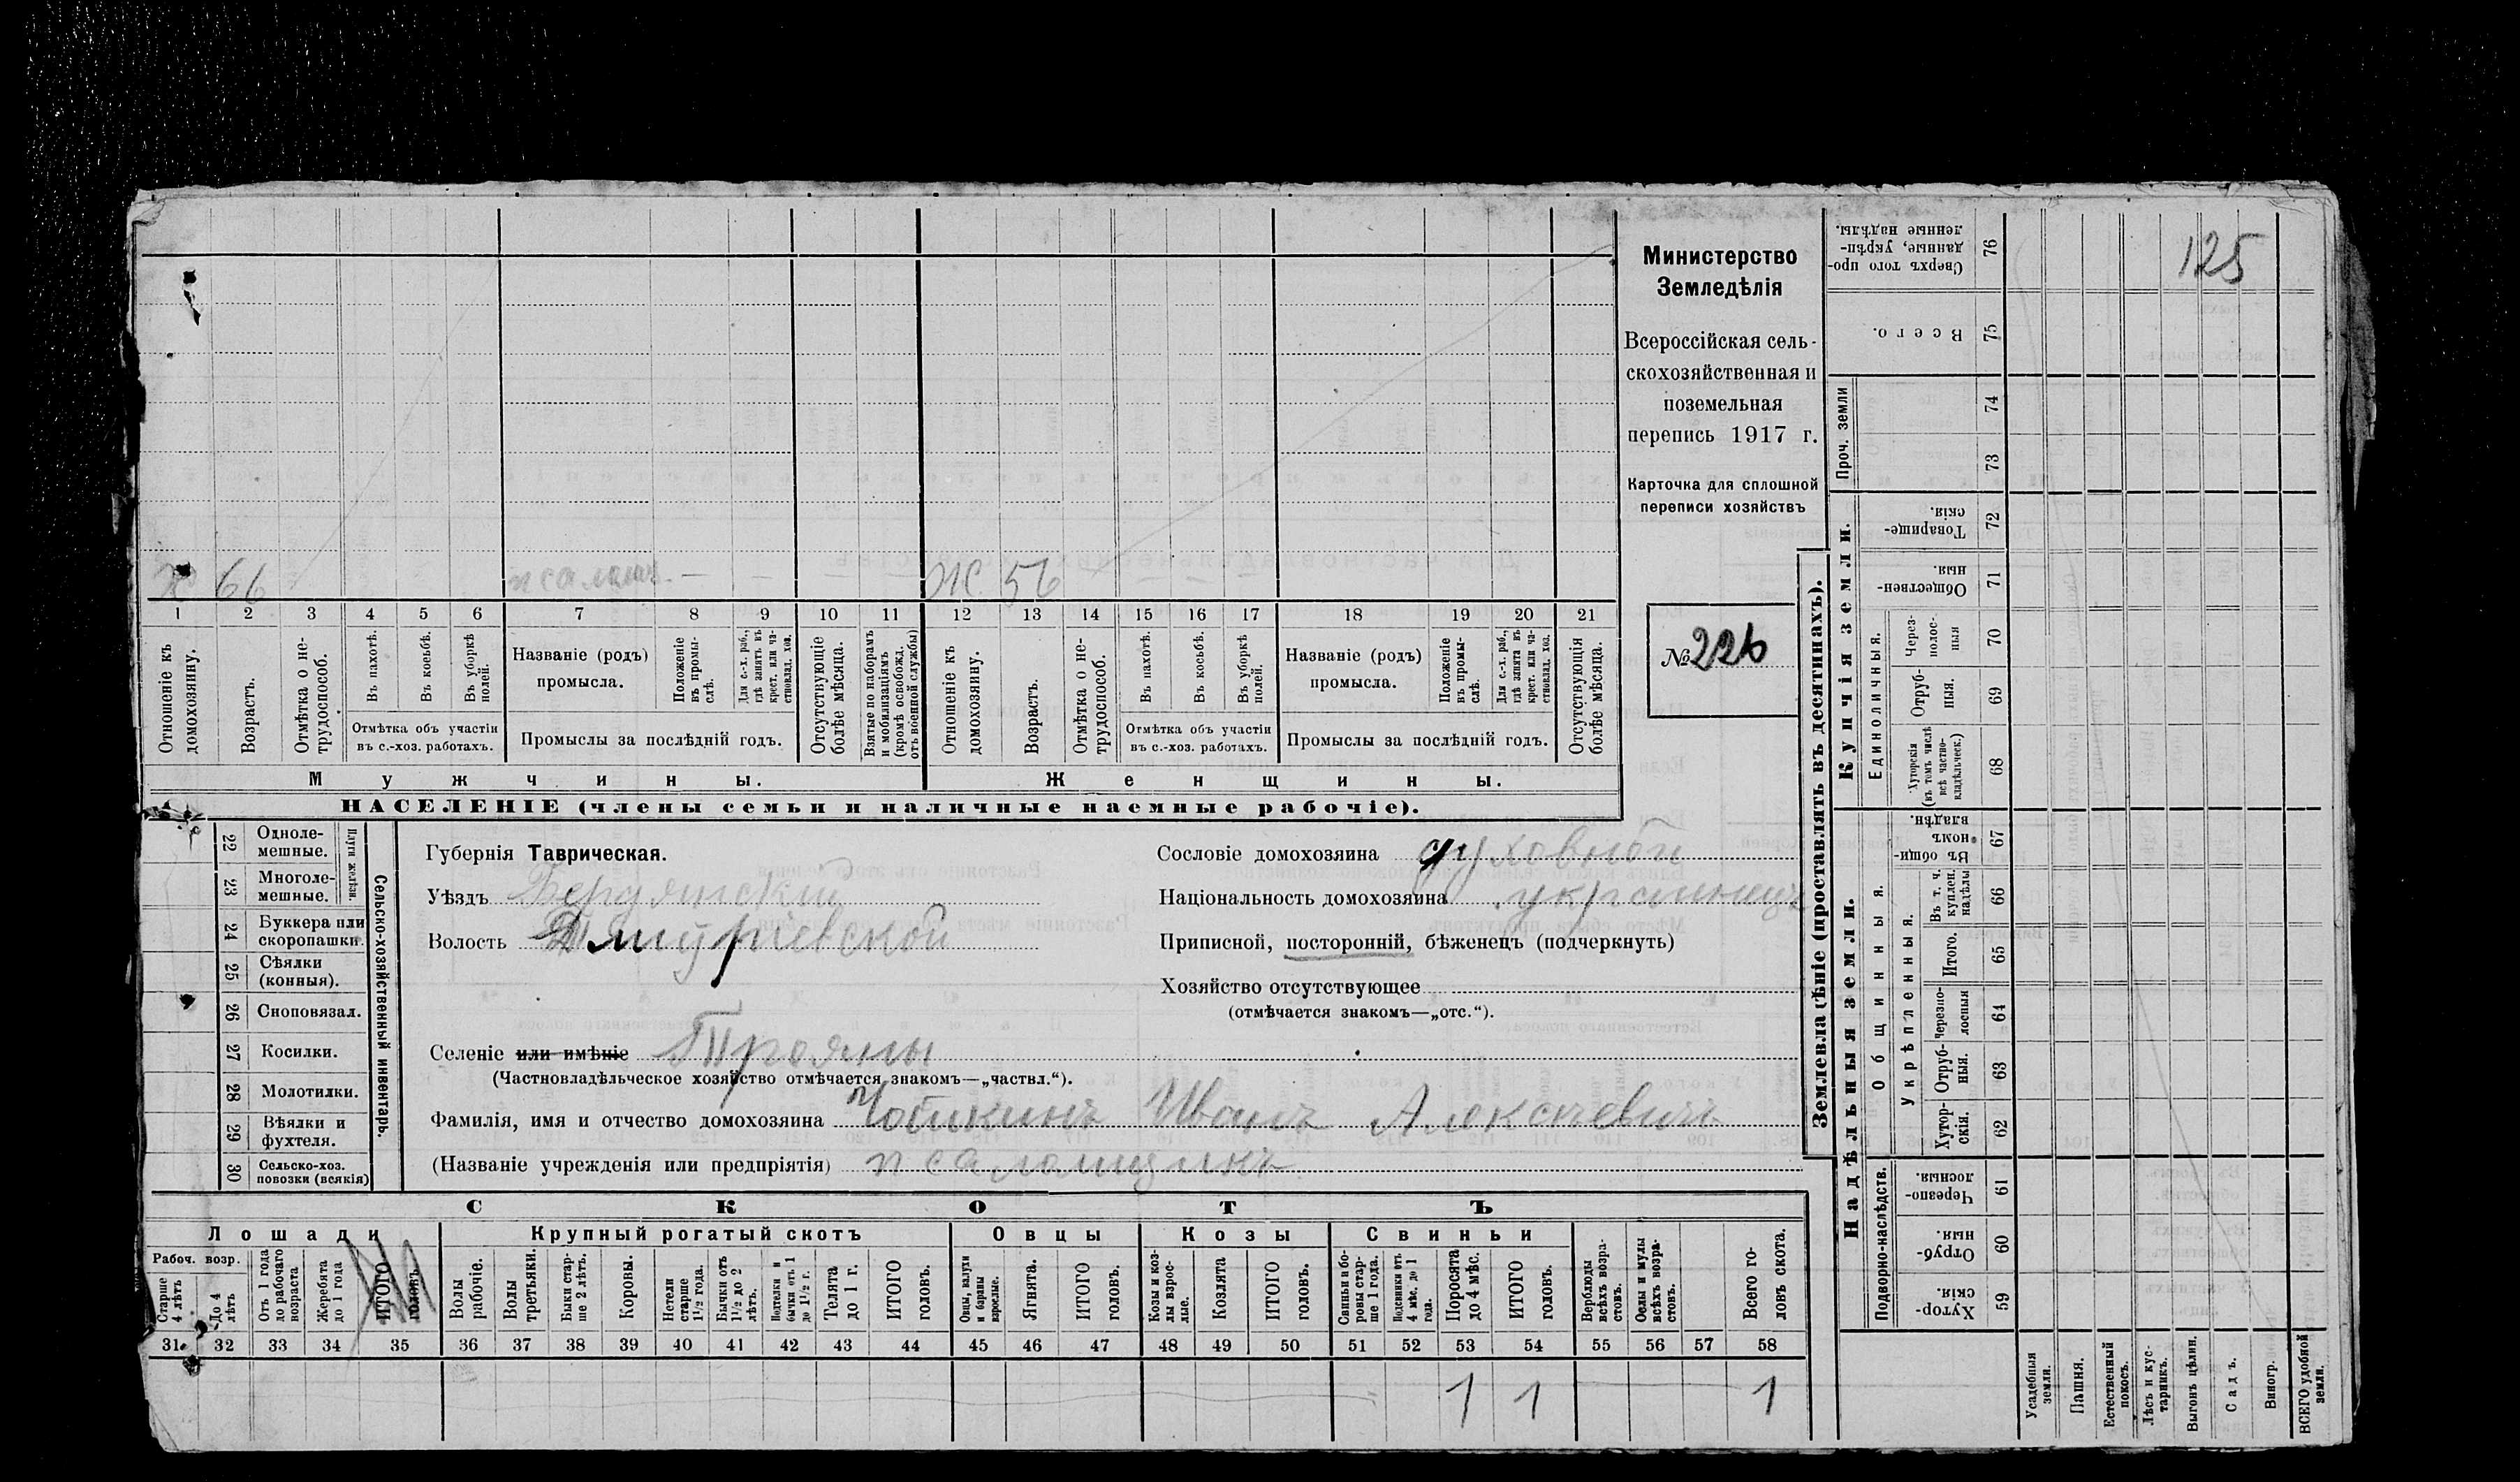 Министерство
Земледѣлія
Всероссійская сель-
скохозяйственная и
поземельная
перепись 1917 г.
Карточка для сплошной
переписи хозяйствъ
№ 226
125
Х 66 псалом. — — — — — Ж 56
1 2 3 4 5 6 7 8 9 10 11 12 13 14 15 16 17 18 19 20 21
Отношеніе къ домохозяину.
Возрастъ.
Отмѣтка о не-трудоспособ.
Въ пахотѣ.
Въ косьбѣ.
Въ уборкѣ полей.
Отмѣтка объ участіи
въ с.-хоз. работахъ.
Названіе (родъ)
промысла.
Положеніе въ промы-слѣ.
Для с.-х. раб., гдѣ занятъ въ крест. или ча-стновлад. хоз.
Промыслы за послѣдній годъ.
Отсутствующіе болѣе мѣсяца.
Взятые по наборамъ и мобилизаціямъ (кромѣ освобожд. отъ военной службы)
Отношеніе къ домохозяину.
Возрастъ.
Отмѣтка о не-трудоспособ.
Въ пахотѣ.
Въ косьбѣ.
Въ уборкѣ полей.
Отмѣтка объ участіи
въ с.-хоз. работахъ.
Названіе (родъ)
промысла.
Положеніе въ промы-слѣ.
Для с.-х. раб., гдѣ занята въ крест. или ча-стновлад. хоз.
Промыслы за послѣдній годъ.
Отсутствующія болѣе мѣсяца.
Мужчины.
Женщины.
НАСЕЛЕНІЕ (члены семьи и наличные наемные рабочіе).
22 Одноле-мешные.
23 Многоле-мешные.
Плуги желѣзн.
24 Буккера или скоропашки.
25 Сѣялки (конныя).
26 Сноповязал.
27 Косилки.
28 Молотилки.
29 Вѣялки и фухтеля.
30 Сельско-хоз. повозки (всякія)
Сельско-хозяйственный инвентарь.
Губернія Таврическая.
Уѣздъ Бердянский
Волость Дмитріевской
Селеніе или имѣніе Трояны
(Частновладѣльческое хозяйство отмѣчается знакомъ—„частвл.“).
Фамилія, имя и отчество домохозяина Чойкинъ Иванъ Алексѣевичъ
(Названіе учрежденія или предпріятія) псаломщикъ
Сословіе домохозяина духовной
Національность домохозяина украинецъ
Приписной, посторонній, бѣженецъ (подчеркнуть)
Хозяйство отсутствующее
(отмѣчается знакомъ—„отс.“).
СКОТЪ
Лошади
Крупный рогатый скотъ
Овцы
Козы
Свиньи
Рабоч. возр.
Старше 4 лѣтъ
До 4 лѣтъ
Отъ 1 года до рабочаго возраста
Жеребята до 1 года
ИТОГО головъ.
Волы рабочіе.
Волы третьяки.
Быки стар-ше 2 лѣтъ.
Коровы.
Нетели старше 1½ года.
Бычки отъ 1½ до 2 лѣтъ.
Подтелки и бычки отъ 1 до 1½ г.
Телята до 1 г.
ИТОГО головъ.
Овцы, валухи и бараны взрослые.
Ягнята.
ИТОГО головъ.
Козы и коз-лы взрос-лые.
Козлята
ИТОГО головъ.
Свиньи и бо-ровы стар-ше 1 года.
Подсвинки отъ 4 мѣс. до 1 года.
Поросята до 4 мѣс.
ИТОГО головъ.
Верблюды всѣхъ возра-стовъ.
Ослы и мулы всѣхъ возра-стовъ.
Всего го-ловъ скота.
31 32 33 34 35 36 37 38 39 40 41 42 43 44 45 46 47 48 49 50 51 52 53 54 55 56 57 58
1 1 1
Землевладѣніе (проставлять въ десятинахъ).
Купчія земли.
Надѣльныя земли.
76 Сверхъ того про-данные, укрѣп-ленные надѣлы.
75 Всего.
Проч. земли
74
73
72 Товарище-скія.
71 Обществен-ныя.
Единоличныя.
70 Через-полос-ныя
69 Отруб-ныя.
68 Хуторскія (въ томъ числѣ всѣ частно-владѣльческ.)
Общинныя.
67 Въ общи-номъ владѣн.
Укрѣпленныя.
66 Въ т. ч. куплен. надѣлы
65 Итого.
64 Черезпо-лосныя
63 Отруб-ныя.
62 Хутор-скія.
Подворно-наслѣдств.
61 Черезпо-лосныя.
60 Отруб-ныя.
59 Хутор-скія.
Усадебныя земли.
Пашня.
Естественный покосъ.
Лѣсъ и кус-тарникъ.
Выгонъ цѣлин.
Садъ.
Виногр.
ВСЕГО удобной земли.